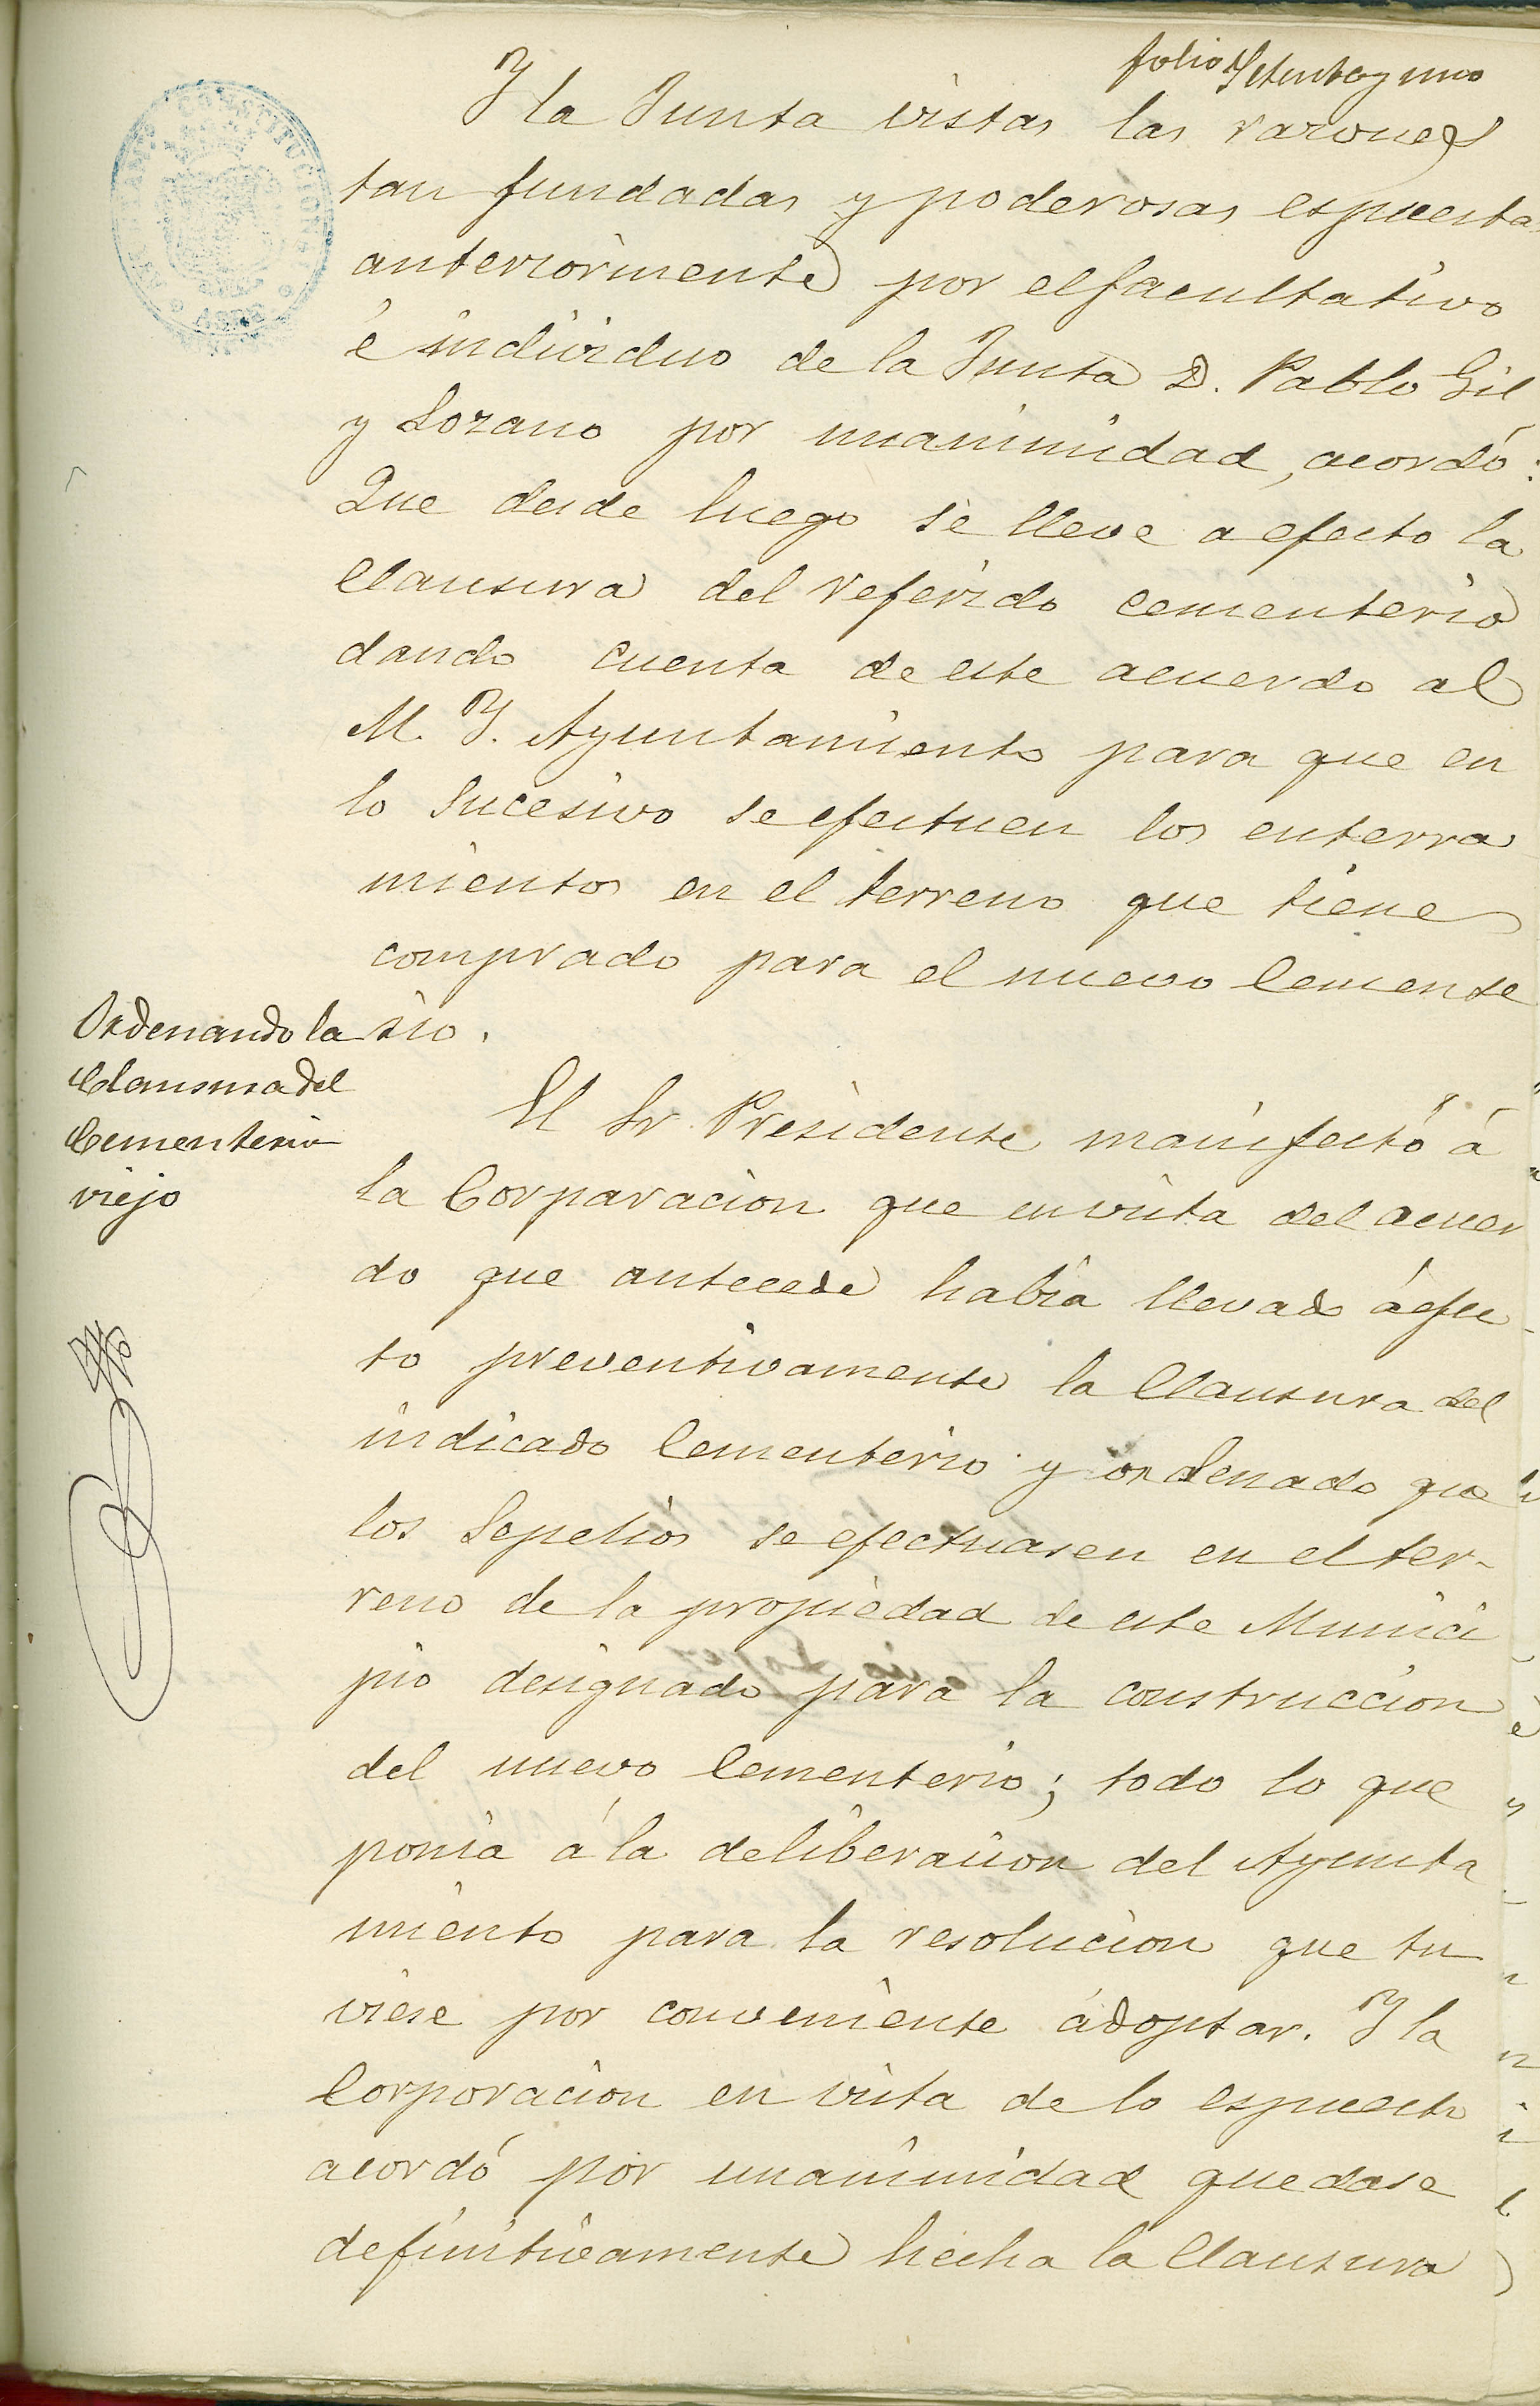 folio Setenta y uno
Y la Junta vistas las razones
tan fundadas y poderosas espuestas
anteriormente por el facultativo
é individuo de la Junta D. Pablo Gil
y Lozano por unanimidad, acordó:
Que desde luego se lleve a efecto la
clausura del referido cementerio
dando cuenta de este acuerdo al
M. Y. Ayuntamiento para que en
lo sucesivo se efectuen los enterra
mientos en el terreno que tiene
comprado para el nuevo Cemente
rio.
Ordenando la
Clausura del
Cementerio
viejo
El Sr. Presidente manifestó á
la Corparacion que en vista del acuer
do que antecede habia llevado á efec-
to preventivamente la Clausura del
indicado Cementerio y ordenado que
los Sepelios se efectuasen en el ter-
reno de la propiedad de este Munici
pio designado para la construccion
del nuevo Cementerio; todo lo que
ponia á la deliberacion del Ayunta
miento para la resolucion que tu
viese por conveniente adoptar. Y la
Corporacion en vista de lo espuesto
acordó por unanimidad quedase
definitivamente hecha la Clausura